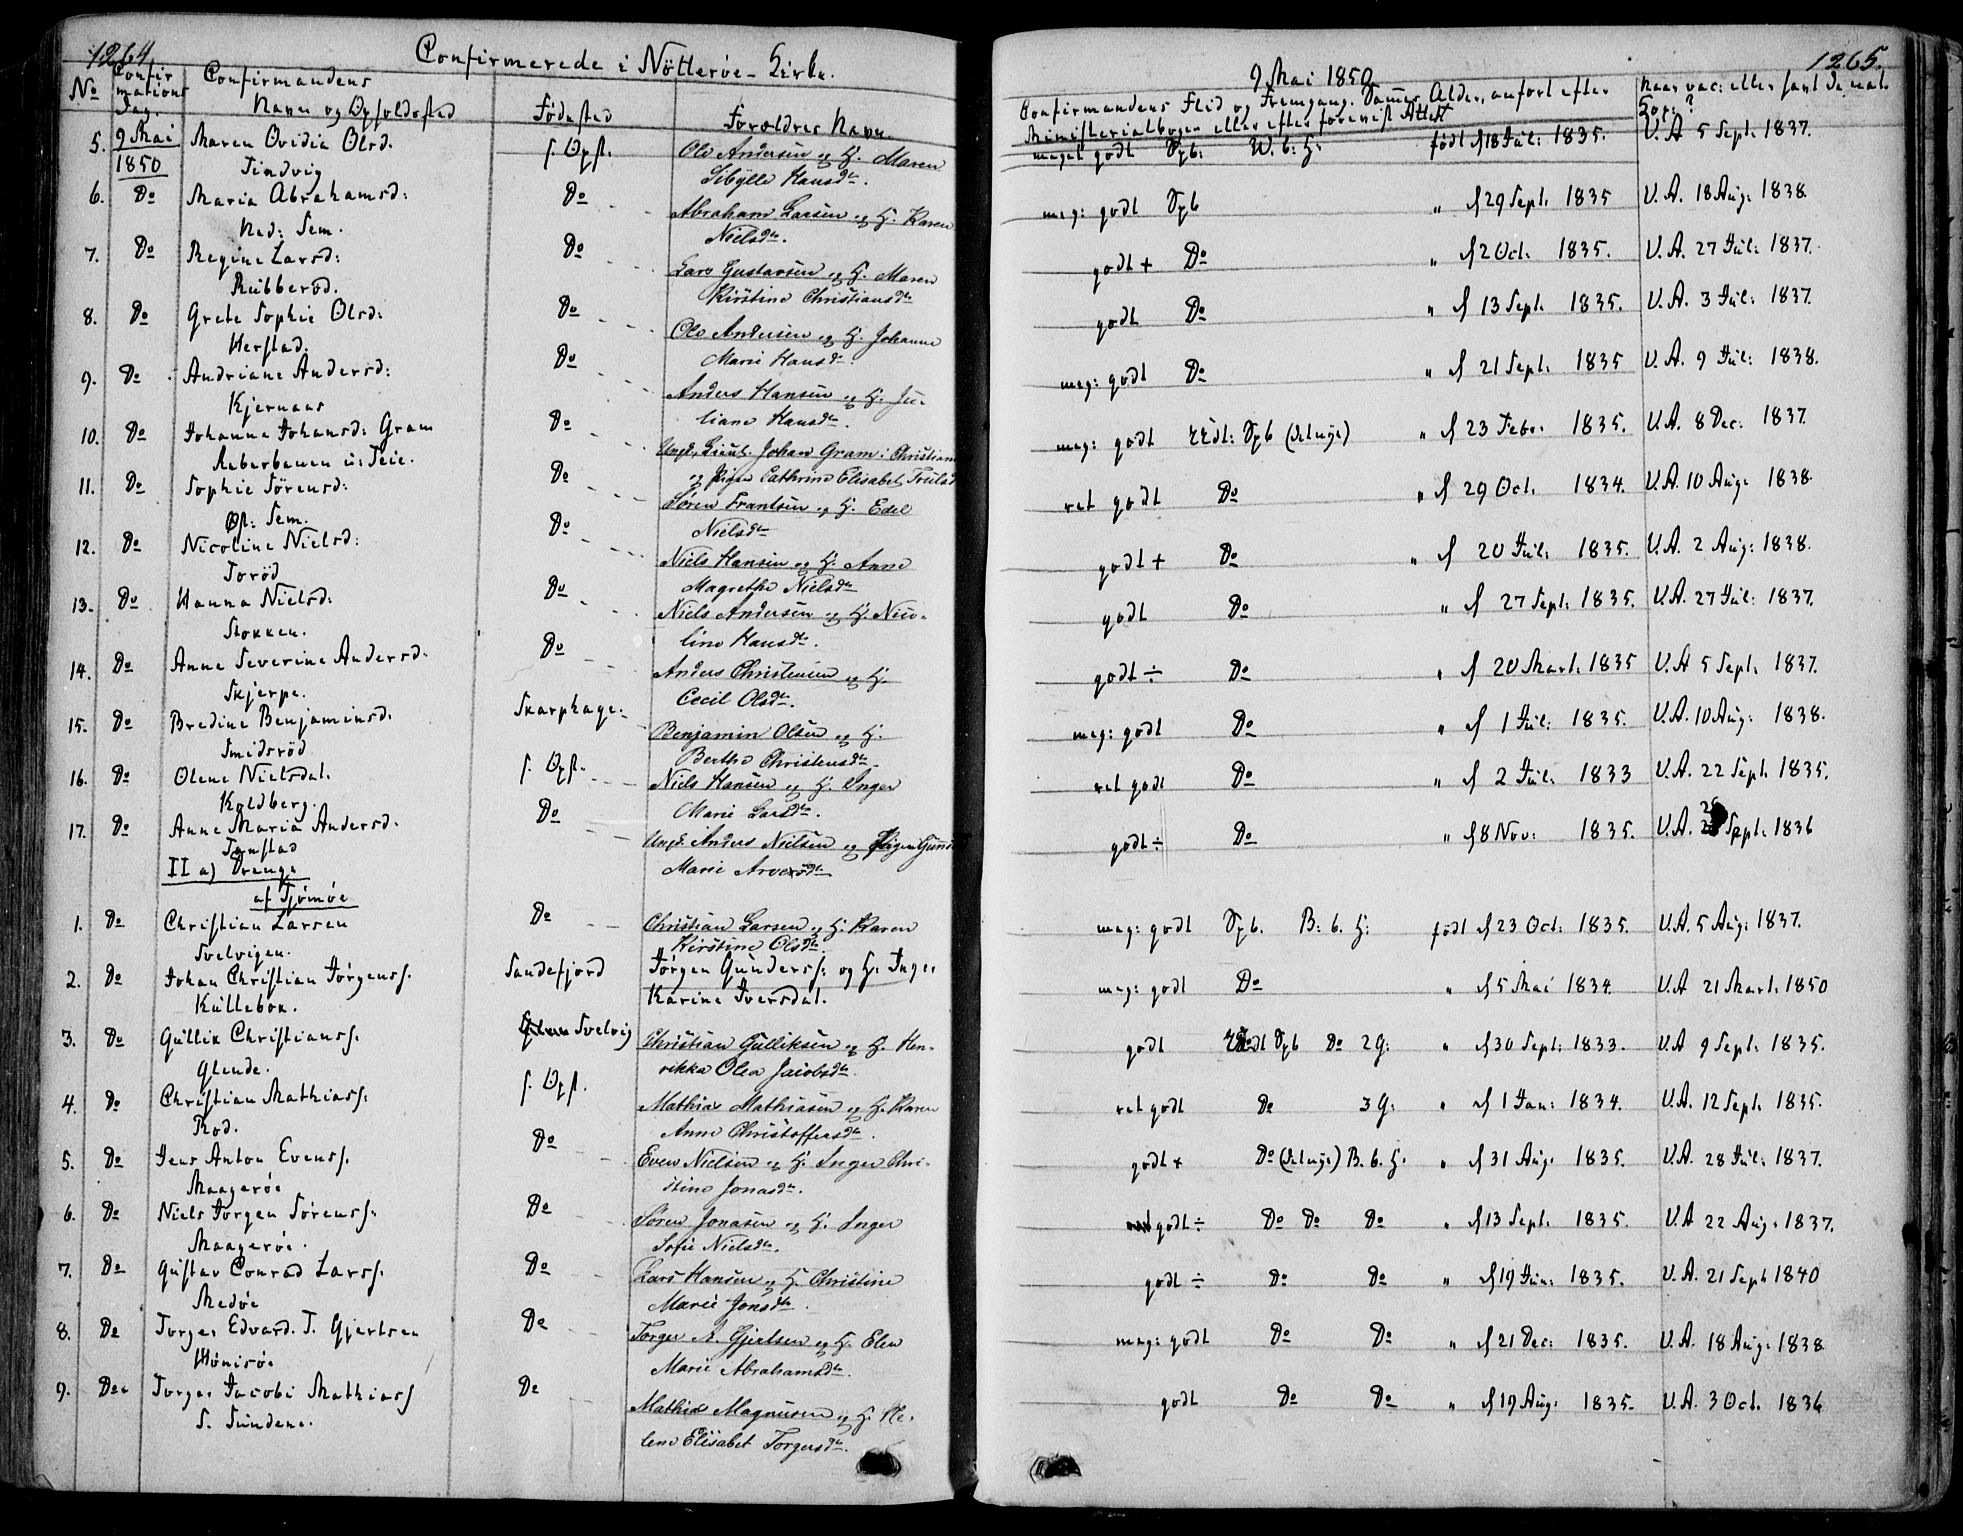 1264.
Confirmerede i Nötterøe-Kirke.
No
Confirmations Dag.
Confirmandens
Navn og Opholdssted
Fødested
Forældres Navn
5. 9 Mai 1850 Maren Ovidia Olsd. f. Opst. Ole Andersen og H. Maren
Tindvig Sibÿlle Hansdtr.
6. Do Maria Abrahamsd: Do Abraham Larsen og H. Karen
Ned: Sem. Nielsdtr.
7. Do Regine Larsd: Do Lars Gustavsen og H. Maren
Rubberöd. Kirstine Christiansdtr
8. Do Grete Sophie Olsd: Do Ole Andersen og H. Johanne
Herstad. Marie Hansdtr
9. Do Andriane Andersd: Do Anders Hansen og H. Ju-
Kjernaas liane Hansdtr.
10. Do Johanne Johansd: Gram Do Ungk. Lieut. Johan Gram i Christian
u: Teie. og Pigen Cathrine Elisabet
11. Do Sophie Sörensd: Do Sören Frantsen og H. Edel
Op: Sem. Nielsdtr
12. Do Nicoline Nielsd: Do Niels Hansen og H. Anne
Toröd Magrethe Nielsdtr
13. Do Hanna Nielsd: Do Niels Andersen og H. Nico-
Stokken. line Hansdtr.
14. Do Anne Severine Andersd. Do Anders Christensen og H.
Skjerpe. Cecil Olsdtr.
15. Do Bredine Benjaminsd. Skarphage. Benjamin Olsen og H.
Smidsröd Berthe Christensdtr.
16. Do Olene Nielsdat. f. Opst. Niels Hansen og H. Inger
Koldberg. Marie Larsdtr.
17. Do Anne Maria Andersd. Do Ungk. Anders Nielsen og Pigen
Tanstad Marie
II a) Drenge
af Tjömöe
1. Do Christian Larsen Do Christian Larsen og H. Karen
Svelvigen. Kirstine Olsdtr.
2. Do Johan Christian Jörgenss. Sandefjord Jörgen Gunderss: og H. Inger
Küllebok. Karine Iversdat.
3. Do Gullik Christianss. Svelvig Christian Gulliksen og H. Hen-
Glende. rikka Olea Jacobsdtr.
4. Do Christian Mathiass: f. Opst. Mathias Mathiasen og H. Karen
Rod. Anne Christoffersdtr.
5. Do Jens Anton Evenss. Do Even Nielsen og H. Inger Chri-
Maageröe stine Jonasdtr.
6. Do Niels Jörgen Sörenss. Do Sören Jonasen og H. Inger
Maageröe. Sofie Nielsdtr.
7. Do Gustav Conrad Larss. Do Lars Hansen og H. Christine
Medöe Marie Jonsdtr.
8. Do Torger Edvard T. Gjertsen Do Torger A. Gjertsen og H. Elen
Hönisöe Marie Abrahamsdtr.
9. Do Torger Jacobi Mathiass Do Mathias Magnusen og H. He-
S. Sundene. lene Elisabet Torgersdtr.
1265.
9 Mai 1850
Confirmandens Flid og Fremgang. Sammes Alder, anfört efter
Ministerialbogen eller efter forevist Attest
Naar vac: eller havt de nat. Kop:?
meget godt Spb: W. b. H: födt d 18 Jul: 1835. V. A. 5 Sept. 1837.
meg: godt Spb " d 29 Sept. 1835 V. A. 18 Aug: 1838.
godt + Do " d 2 Oct. 1835. V. A. 27 Jul: 1837.
godt Do " d 13 Sept. 1835. V. A. 3 Jul: 1837.
meg: godt Do " d 21 Sept. 1835 V. A. 9 Jul: 1838.
meg: godt Spb (det nye) " d 23 Febr: 1835. V. A. 8 Dec: 1837.
ret godt Do " d 29 Oct. 1834. V. A. 10 Aug: 1838.
godt + Do " d 20 Jul: 1835. V. A. 2 Aug: 1838.
godt Do " d 27 Sept: 1835. V. A. 27 Jul: 1837.
godt ÷ Do " d 20 Mart. 1835 V. A 5 Sept. 1837.
meg: godt Do " d 1 Jul: 1835. V. A. 10 Aug: 1838.
ret godt Do " d 2 Jul: 1833 V. A. 22 Sept. 1835.
godt ÷ Do " d 8 Nov: 1835. V. A. Sept. 1836
meg: godt Spb. B. b. H: födt d 23 Oct: 1835. V. A. 5 Aug: 1837.
meg: godt Do " d 5 Mai 1834. V. A 21 Mart. 1850
godt Spb Do 2 G: " d 30 Sept: 1833. V. A 9 Sept. 1835.
ret godt Do 3 G: " d 1 Jan: 1834. V. A. 12 Sept. 1835.
godt + Do (det nye) B. b. H. " d 31 Aug: 1835. V. A. 28 Jul: 1837.
godt ÷ Do Do Do " d 13 Sept. 1835. V. A 22 Aug: 1837.
godt ÷ Do Do " d 19 Jun: 1835. V. A. 21 Sept 1840
meg: godt Do Do " d 21 Dec: 1835. V. A. 18 Aug: 1838
godt Do Do " d 19 Aug: 1835. V. A. 3 Oct. 1836